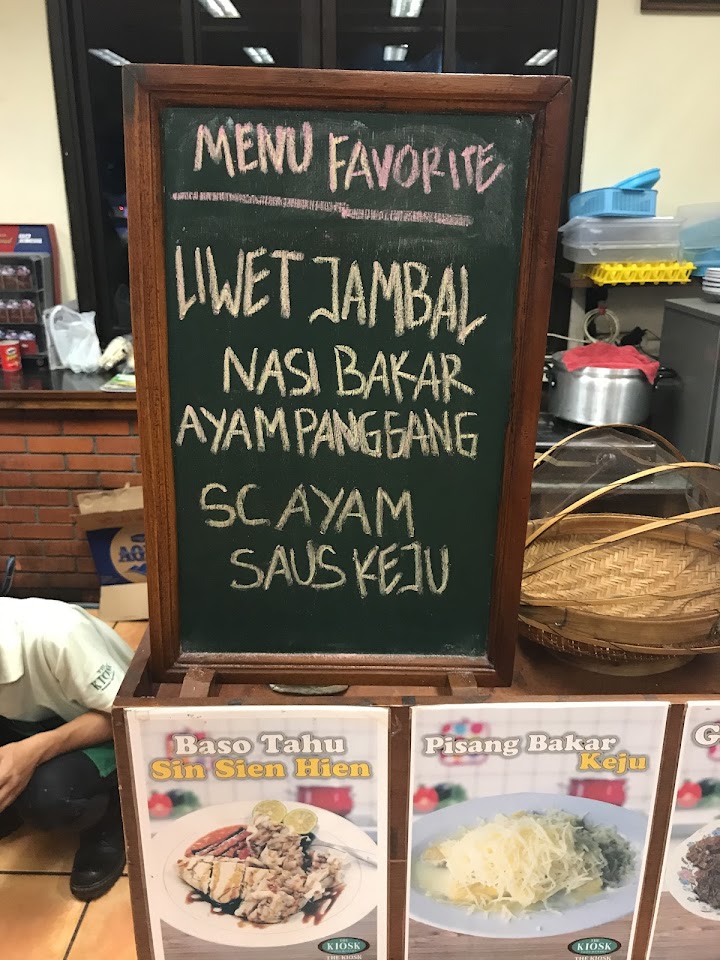 MENU FAVORITE
LIWET JAMBAL
NASI BAKAR
AYAM PANGGANG
SC AYAM
SAUS KEJU
KIOSK
Baso Tahu
Sin Sien Hien
THE
KIOSK
THE KIOSK
Pisang Bakar
Keju
THE
KIOSK
THE KIOSK
G